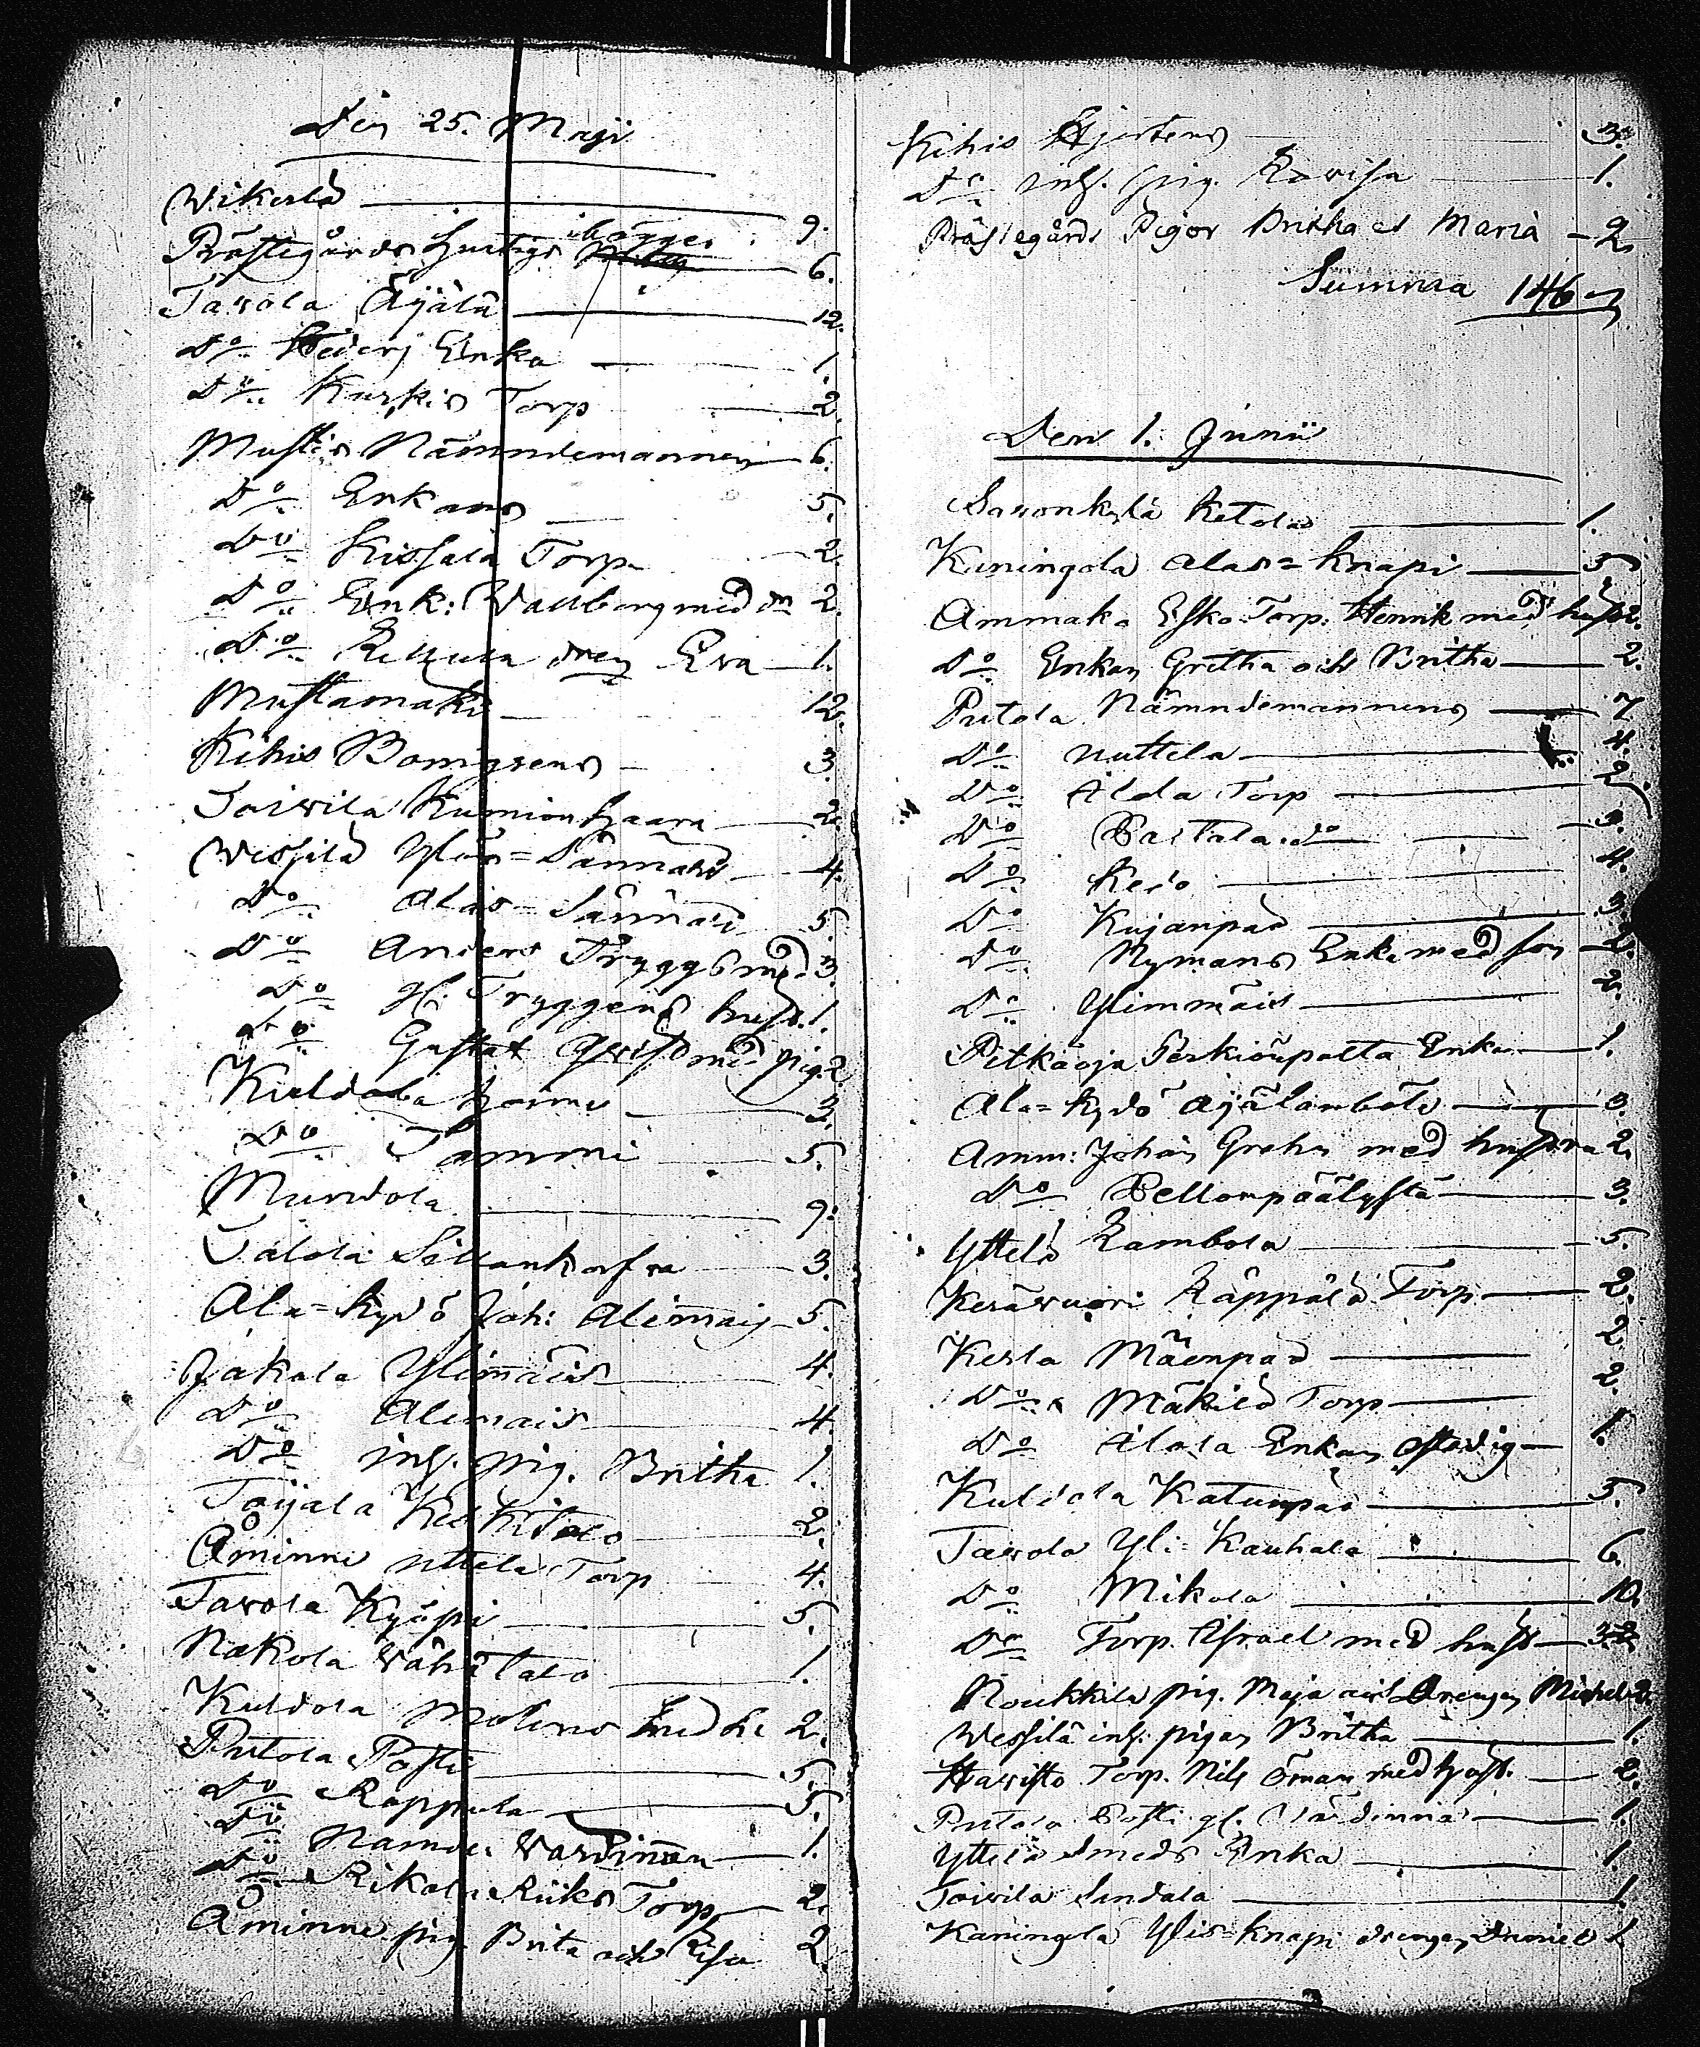 Den 25. Maji
Wikerlä 9.
Prästegårds hustigo ibägge 6.
Tavola Äijälä 12.
Do Hederj Enka 1.
Do Kurkis Torp 2.
Mustis Nämndemannen 6.
Do Enkans 5.
Do Kissala Torp 2.
Do Enk: Wallberg med dr 2.
Do dreng Eva 1.
Mustamaki 12.
Kihis Bomgrens 3.
Toivila Kumionhaara 2.
Wessilä Ylös=Sännäs 4.
Do Alas=Sännäs 5.
Do Anders Tryggs med 3.
Do gl: Tryggens hust. 1.
Do Gustaf Qvist med pig. 2.
Kuldola hormi 3.
Do Tammi 5.
Mundola 9.
Talola Sillankorfva 3.
Ala=Kydö Joh: Alimais 5.
Jakala Ylimäis 4.
Do Alimais 4.
Do inh. pig. Britha 1.
Toijala Keskitalo 2.
Åminne Uttela Torp 4.
Tavola Kyöpi 5.
Nakola Wähätalo 1.
Kuldola Molers 2.
Putola Posti 5.
Do Rappula 5.
Do Namde: Värdinnan 1.
Do Rikala Riiks Torp 2.
Åminne pig. Brita och Lisa 2.
Kihis Hjortens 3.
Do inh. pig. Lovisa 1.
Prästegårds Pigor Britha et Maria 2.
Summa 146
Den 1. Junii
Savonkylä Ketola 1.
Keningola Alas=Knapi 5
Ammaka Esko Torp. Henrik med hust 2.
Do Enkan Gretha och Britha 2.
Putola Nämndemannens 7
Do Nuttela 4.
Do Alola Torp 2.
Do Pastala do 3.
Do Kedo 4.
Do Kujanpää 3.
Do Nymans Enka med son 2.
Do Ylimmäis 2.
Pitkäoja Perkiönpalta Enka 1.
Ala=Kydö Äjälambois 3.
Amm: Johan Grehn med hustru 2.
Do Pellonpäälystä 3.
Yttelä Lambola 5.
Keräwuori Räppälä Torp 2.
Kerla Mäenpää 2.
Do Mäkilä Torp 2.
Do Alola Enkan ostadig 1.
Kuldola Katunpää 5.
Tavola Yli=Kauhala 6.
Do Mikola 10.
Do Torp. Israel med hust 3.
Noukkila pig. Maja och Drengen Michel 2.
Wessilä inh: pigan Britha 1.
Havisto Torp. Nils Öman med hust. 2.
Putola Posti gl. Värdinna 1.
Yttelä Smeds Enka 1.
Toivila Sandala 1.
Kaningola Ylis=Knapi drengen Daniel 1.